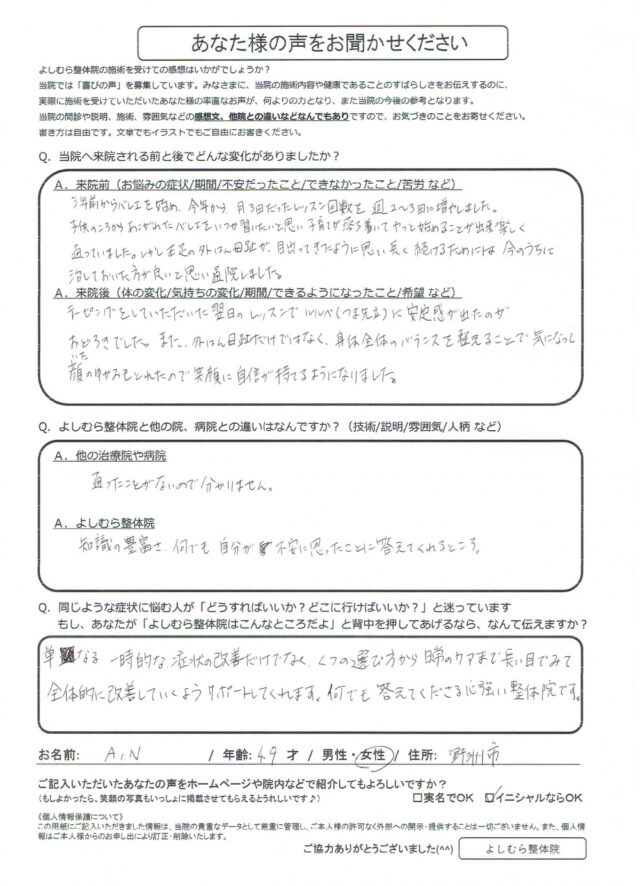 あなた様の声をお聞かせください
よしむら整体院の施術を受けての感想はいかがでしょうか?
当院では「喜びの声」を募集しています。みなさまに、当院の施術内容や健康であることのすばらしさをお伝えするのに、
実際に施術を受けていただいたあなた様の率直なお声が、何よりの力となり、また当院の今後の参考となります。
当院の問診や説明、施術、雰囲気などの感想文、他院との違いなどなんでもありですので、お気づきのことをお寄せください。
書き方は自由です。文章でもイラストでもご自由にお書きください。
Q. 当院へ来院される前と後でどんな変化がありましたか?
A. 来院前(お悩みの症状/期間/不安だったこと/できなかったこと/苦労 など)
年前からバレエを始め、今年から、月3回だったレッスン回数を週2〜3回に増やしました。
子供のころからあこがれたバレエをいつか習いたいと思い子育てが落ち着いてやっと始めることが出来楽しく
通っていました。しかし左足の外はん母趾が、目出ってきたように思い長く続けるためには今のうちに
治しておいた方が良いと思い通院しました。
A. 来院後(体の変化/気持ちの変化/期間/できるようになったこと/希望 など)
テーピングをしていただいた翌日のレッスンでルルベ(つま先立)に安定感が出たのが
おどろきでした。また、外はん母趾だけではなく、身体全体のバランスを整えることで気になって
いた
顔のゆがみもとれたので笑顔に自信が持てるようになりました。
Q. よしむら整体院と他の院、病院との違いはなんですか?(技術/説明/雰囲気/人柄 など)
A. 他の治療院や病院
通ったことがないので分かりません。
A. よしむら整体院
知識の豊富さ、何でも自分が不安に思ったことに答えてくれるところ。
Q. 同じような症状に悩む人が「どうすればいいか?どこに行けばいいか?」と迷っています
もし、あなたが「よしむら整体院はこんなところだよ」と背中を押してあげるなら、なんて伝えますか?
単なる一時的な症状の改善だけでなく、くつの選び方から日常のケアまで長い目でみて
全体的に改善していくようサポートしてくれます。何でも答えてくださる心強い整体院です。
お名前: A,N / 年齢: 49 才 / 男性・女性 / 住所: 野洲市
ご記入いただいたあなたの声をホームページや院内などで紹介してもよろしいですか?
(もしよかったら、笑顔の写真もいっしょに掲載させてもらえるとうれしいです♪) □実名でOK ☑イニシャルならOK
《個人情報保護について》
この用紙にご記入いただきました情報は、当院の貴重なデータとして厳重に管理し、ご本人様の許可なく外部への開示・提供することは一切ございません。また、個人情
報はご本人様からのお申し出により訂正・削除いたします。
ご協力ありがとうございました(^^) よしむら整体院